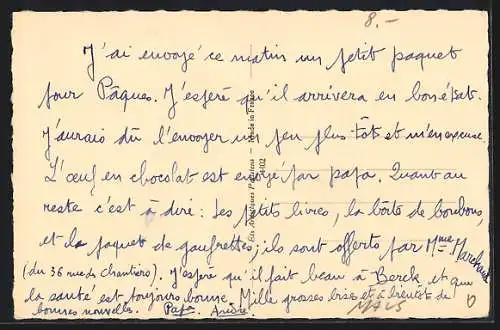 8.-
J'ai envoyé ce matin un petit paquet
pour Pâques. J'espère qu'il arrivera en bon état.
J'aurais dû l'envoyer un peu plus tôt et m'en excuse.
L'œuf en chocolat est envoyé par papa. Quant au
reste c'est à dire : les petits livres, la boîte de bonbons,
et la paquet de gaufrettes ; ils sont offerts par Mme Marchand
(du 36 rue des chantiers). J'espère qu'il fait beau à Berck et que
la santé est toujours bonne. Mille grosses bises et à bientôt de
bonnes nouvelles. Papa André.
Made in France